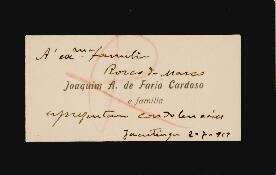 A' Ex.ma familia
Rocas de Marco
Joaquim A. de Faria Cardoso
e familia
apresentam condolencias
Jacutinga 2-7-917